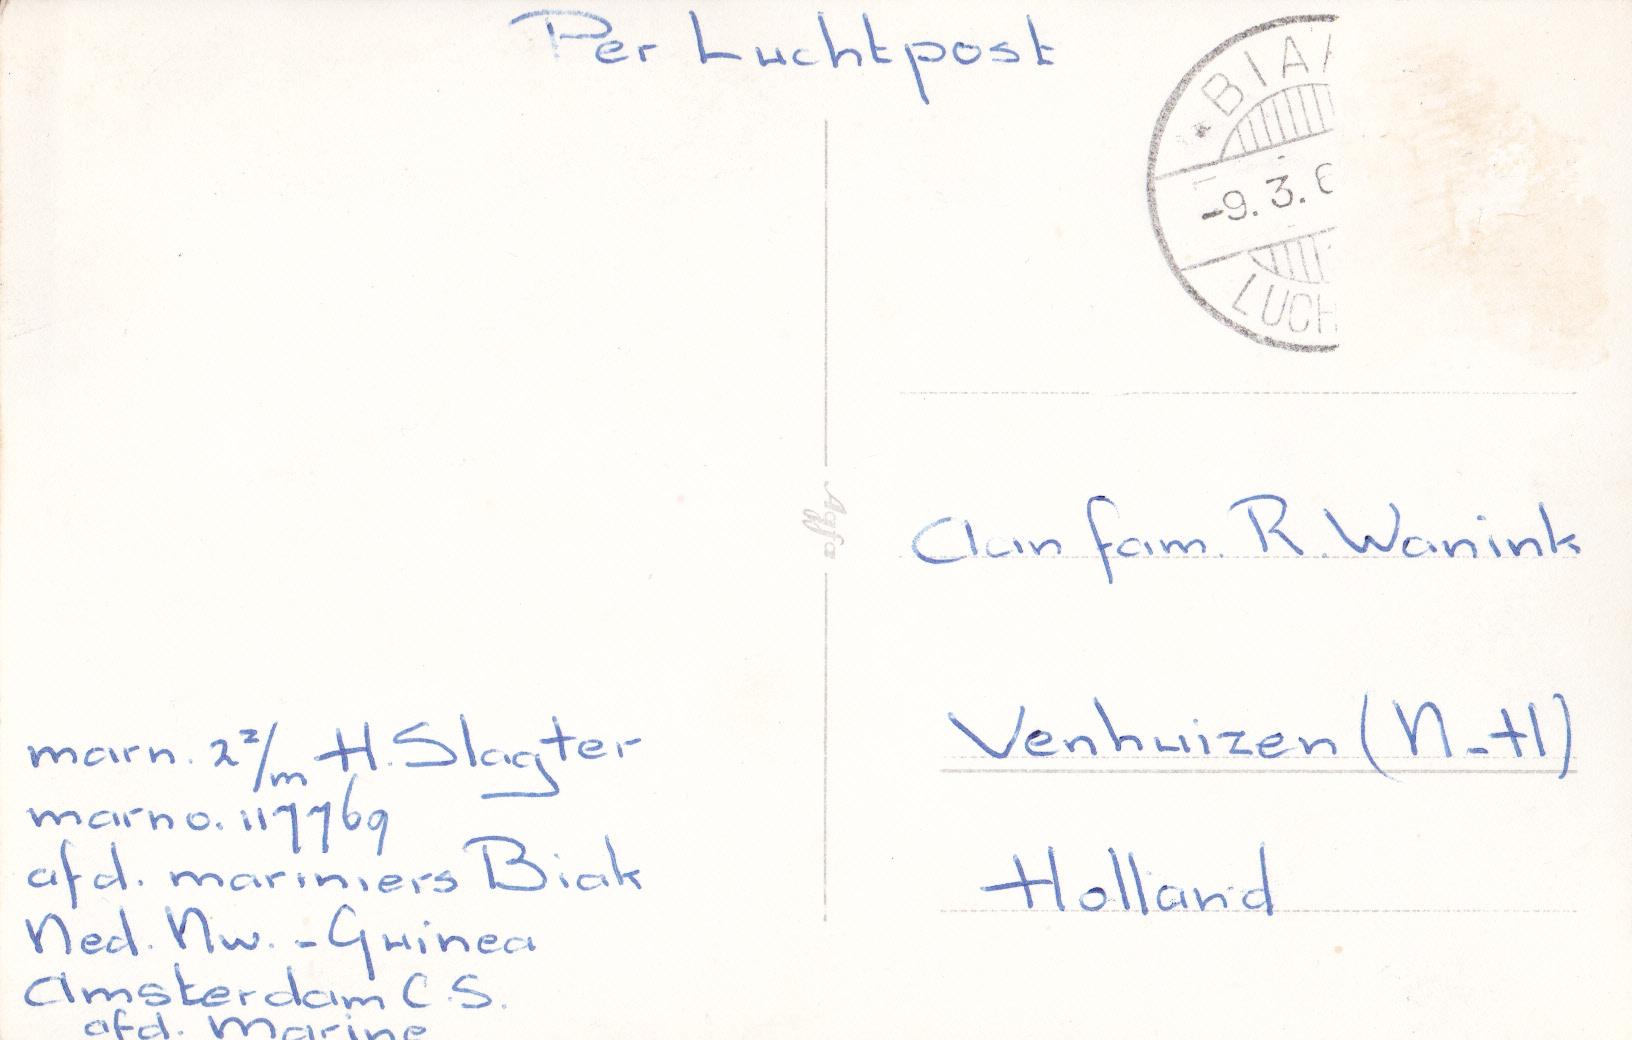 Per Luchtpost
* BIA
-9.3.6
LUCH
Agfa
Aan fam. R. Wanink
Venhuizen (N-H)
Holland
marn. 2z/m H. Slagter
marno. 117769
afd. mariniers Biak
Ned. Nw. - Guinea
Amsterdam C.S.
afd. Marine